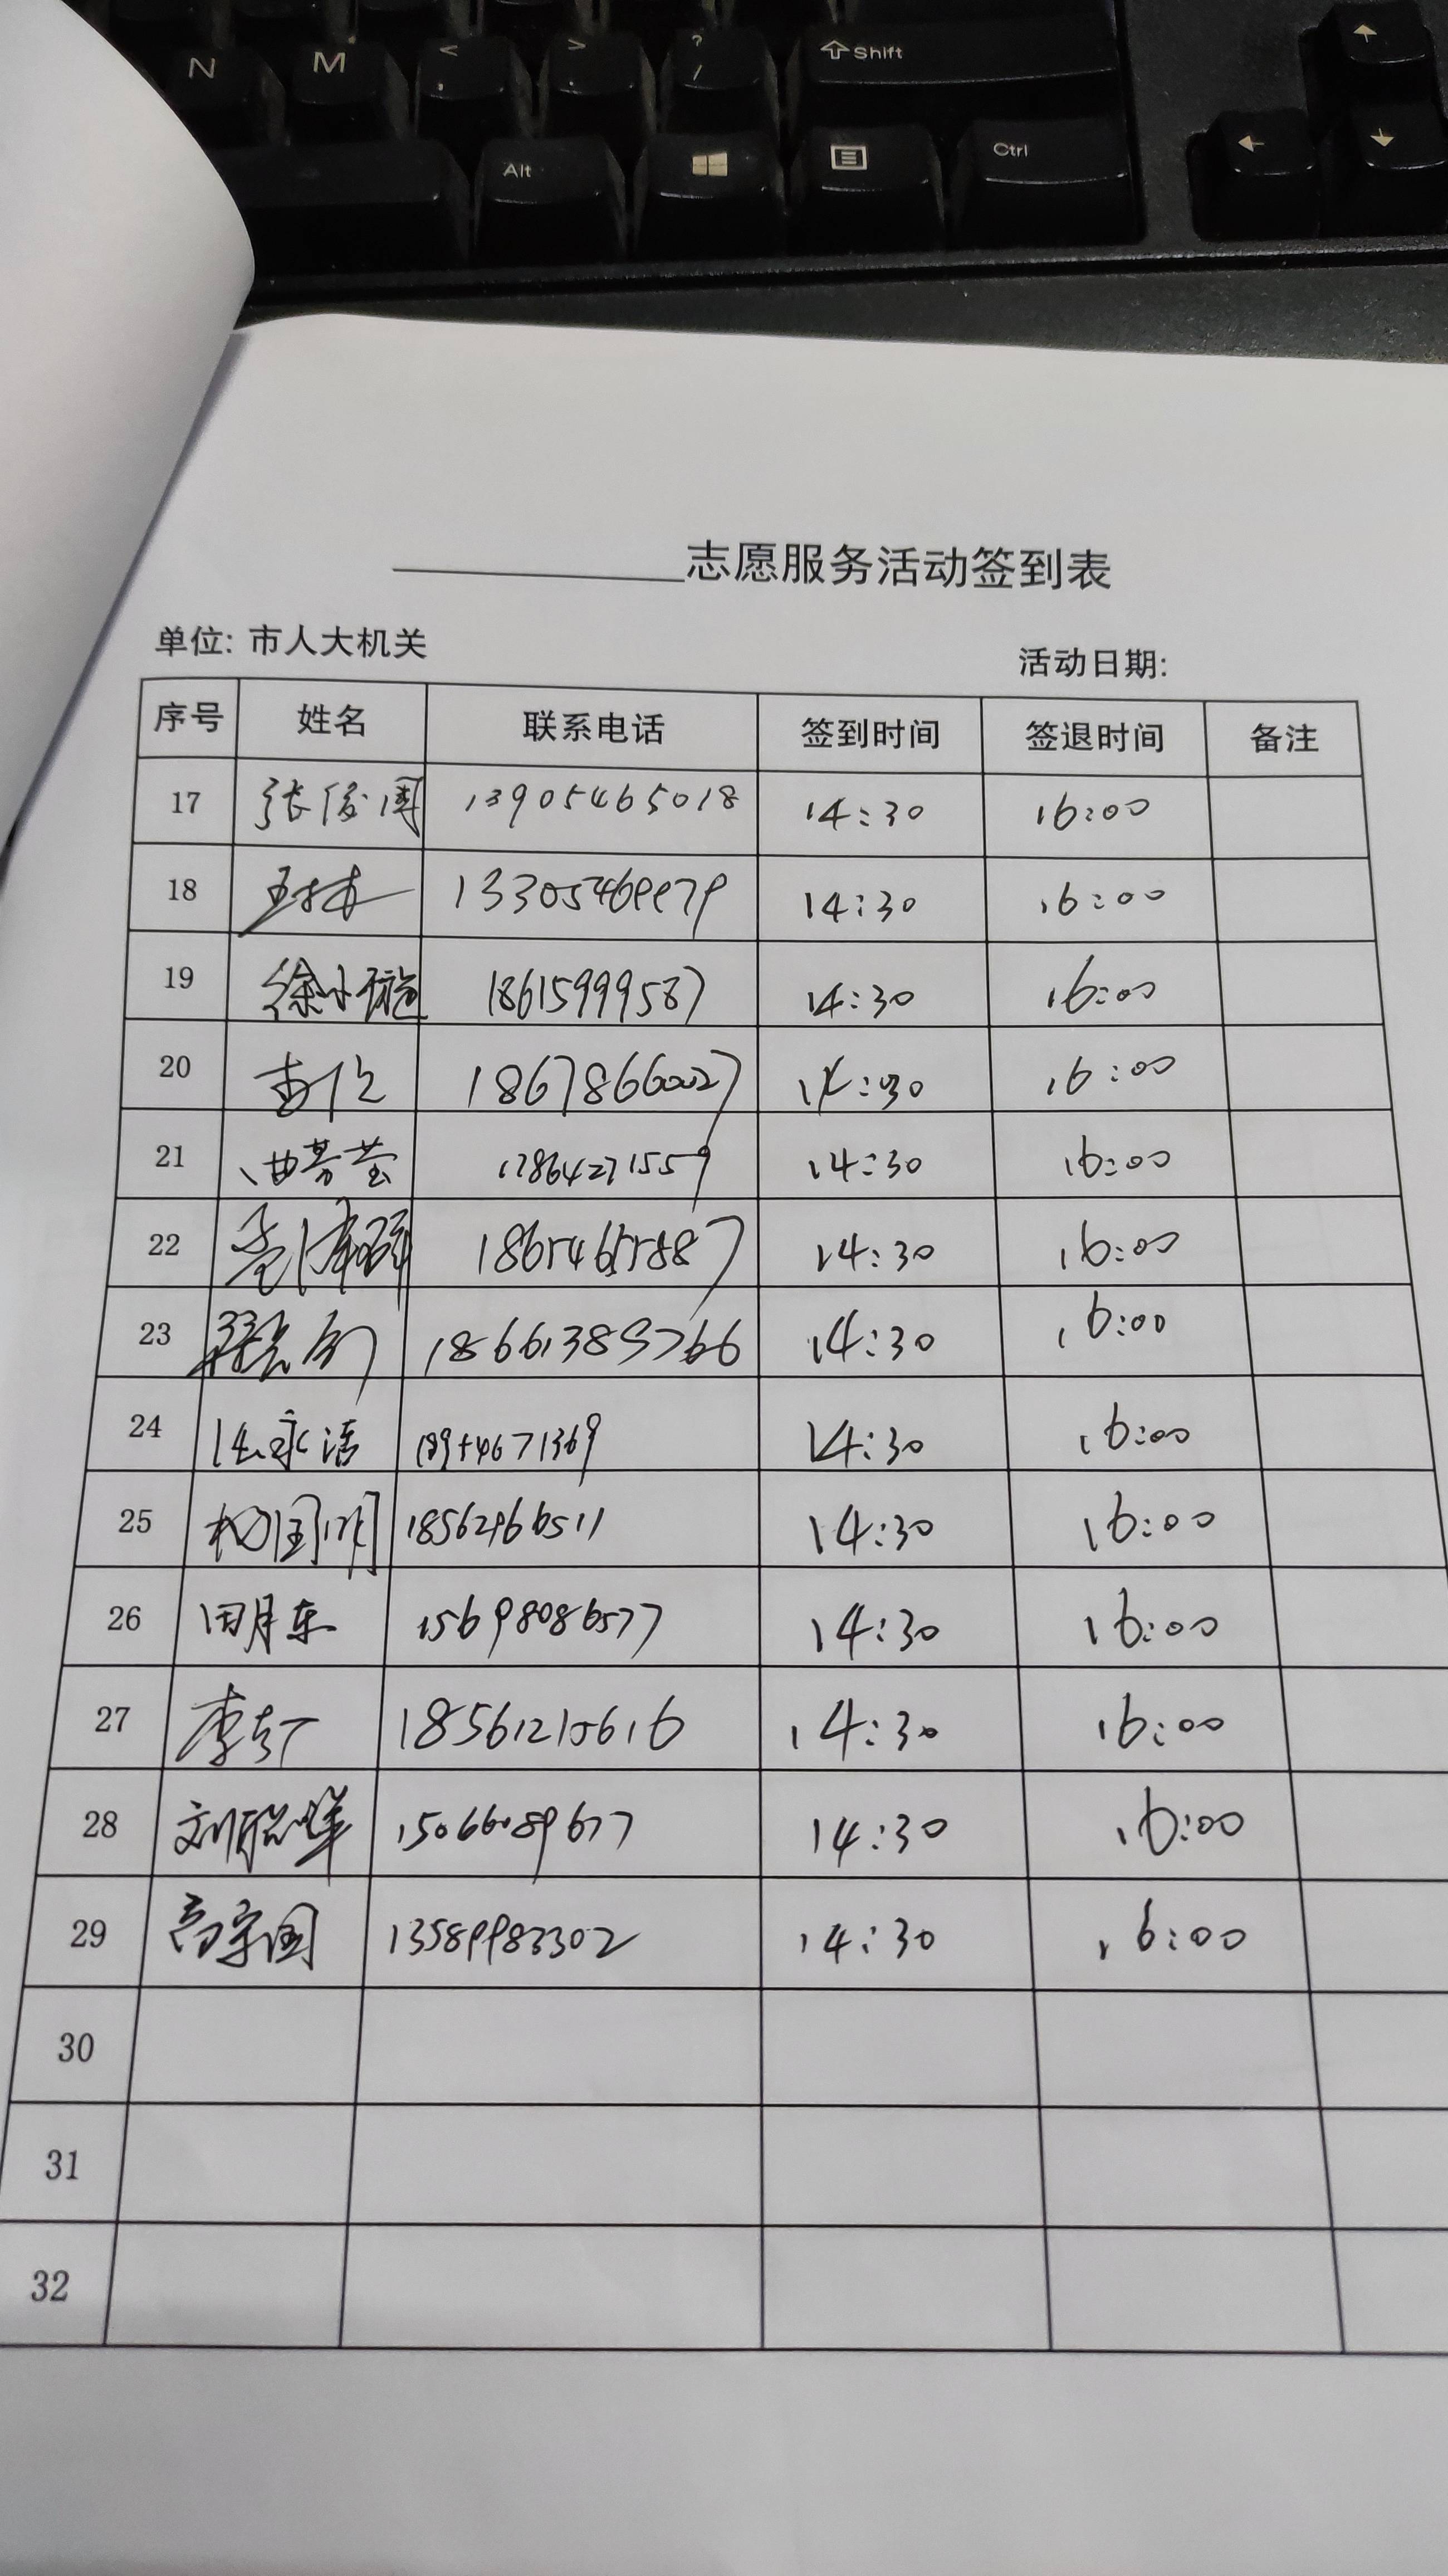 N M < , > . ? / Shift
Alt Ctrl
志愿服务活动签到表
单位: 市人大机关 活动日期:
序号 姓名 联系电话 签到时间 签退时间 备注
17 张俊国 13905465018 14:30 16:00
18 王林 14:30 16:00
19 徐小璇 18615999587 14:30 16:00
20 18678660027 14:30 16:00
21 曲芳莹 17864271559 14:30 16:00
22 18654655887 14:30 16:00
23 18661389766 14:30 16:00
24 14:30 16:00
25 18562966511 14:30 16:00
26 田月东 15698086577 14:30 16:00
27 李 18561210616 14:30 16:00
28 刘聪 15066089677 14:30 16:00
29 高宗国 13589983302 14:30 16:00
30
31
32